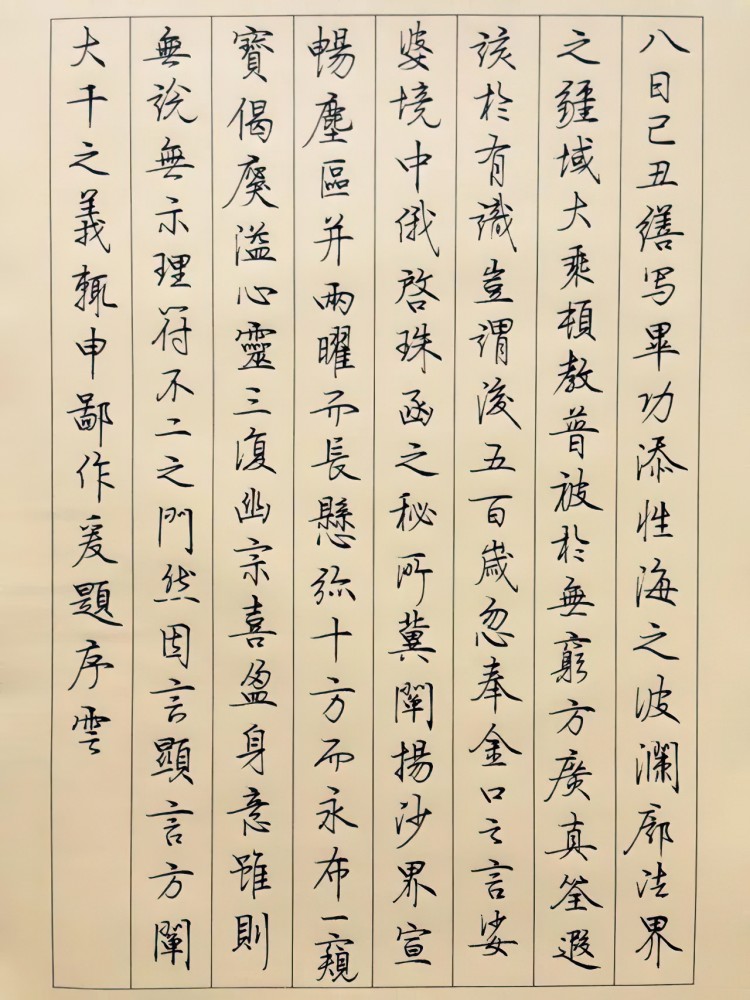 八日己丑繕写畢功添性海之波瀾廓法界
之疆域大乘頓教普被於無窮方廣真筌遐
該於有識豈謂後五百歲忽奉金口之言娑
婆境中俄啓珠函之秘所冀闡揚沙界宣
暢塵區并兩曜而長懸弥十方而永布一窺
寶偈慶溢心靈三復幽宗喜盈身意雖則
無說無示理符不二之門然因言顯言方闡
大千之義輒申鄙作爰題序雲